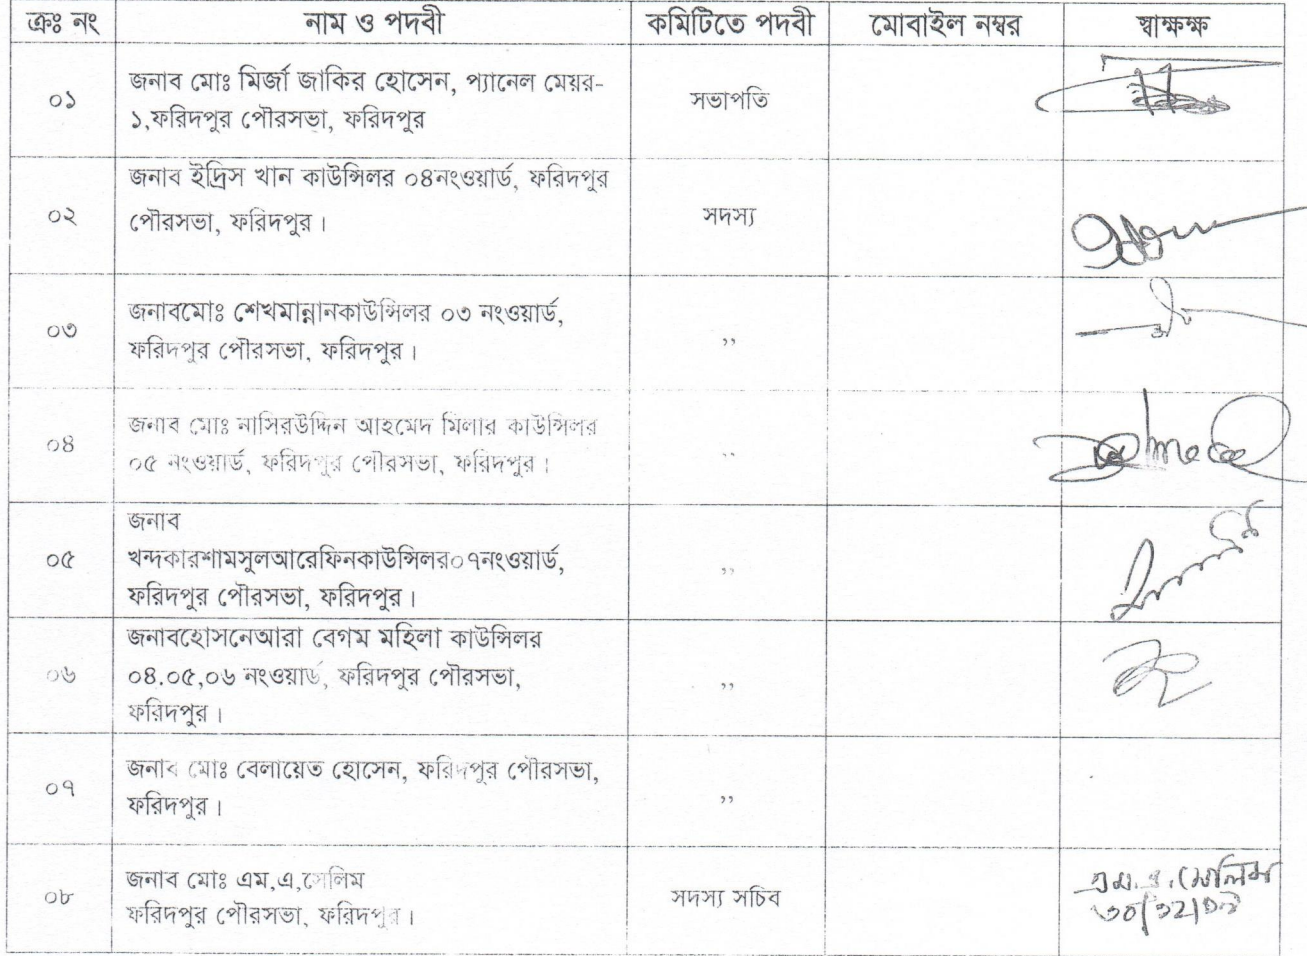 ক্রঃ নং নাম ও পদবী কমিটিতে পদবী মোবাইল নম্বর স্বাক্ষক্ষ
০১ জনাব মোঃ মির্জা জাকির হোসেন, প্যানেল মেয়র-
১,ফরিদপুর পৌরসভা, ফরিদপুর
সভাপতি
০২ জনাব ইদ্রিস খান কাউন্সিলর ০৪নংওয়ার্ড, ফরিদপুর
পৌরসভা, ফরিদপুর।
সদস্য
০৩ জনাবমোঃ শেখমান্নানকাউন্সিলর ০৩ নংওয়ার্ড,
ফরিদপুর পৌরসভা, ফরিদপুর।
,,
০৪ জনাব মোঃ নাসিরউদ্দিন আহমেদ মিলার কাউন্সিলর
০৫ নংওয়ার্ড, ফরিদপুর পৌরসভা, ফরিদপুর।
,,
০৫ জনাব
খন্দকারশামসুলআরেফিনকাউন্সিলর০৭নংওয়ার্ড,
ফরিদপুর পৌরসভা, ফরিদপুর।
,,
০৬ জনাবহোসনেআরা বেগম মহিলা কাউন্সিলর
০৪.০৫,০৬ নংওয়ার্ড, ফরিদপুর পৌরসভা,
ফরিদপুর।
,,
০৭ জনাব মোঃ বেলায়েত হোসেন, ফরিদপুর পৌরসভা,
ফরিদপুর।
,,
০৮ জনাব মোঃ এম,এ,সেলিম
ফরিদপুর পৌরসভা, ফরিদপুর।
সদস্য সচিব
এম. এ. সেলিম